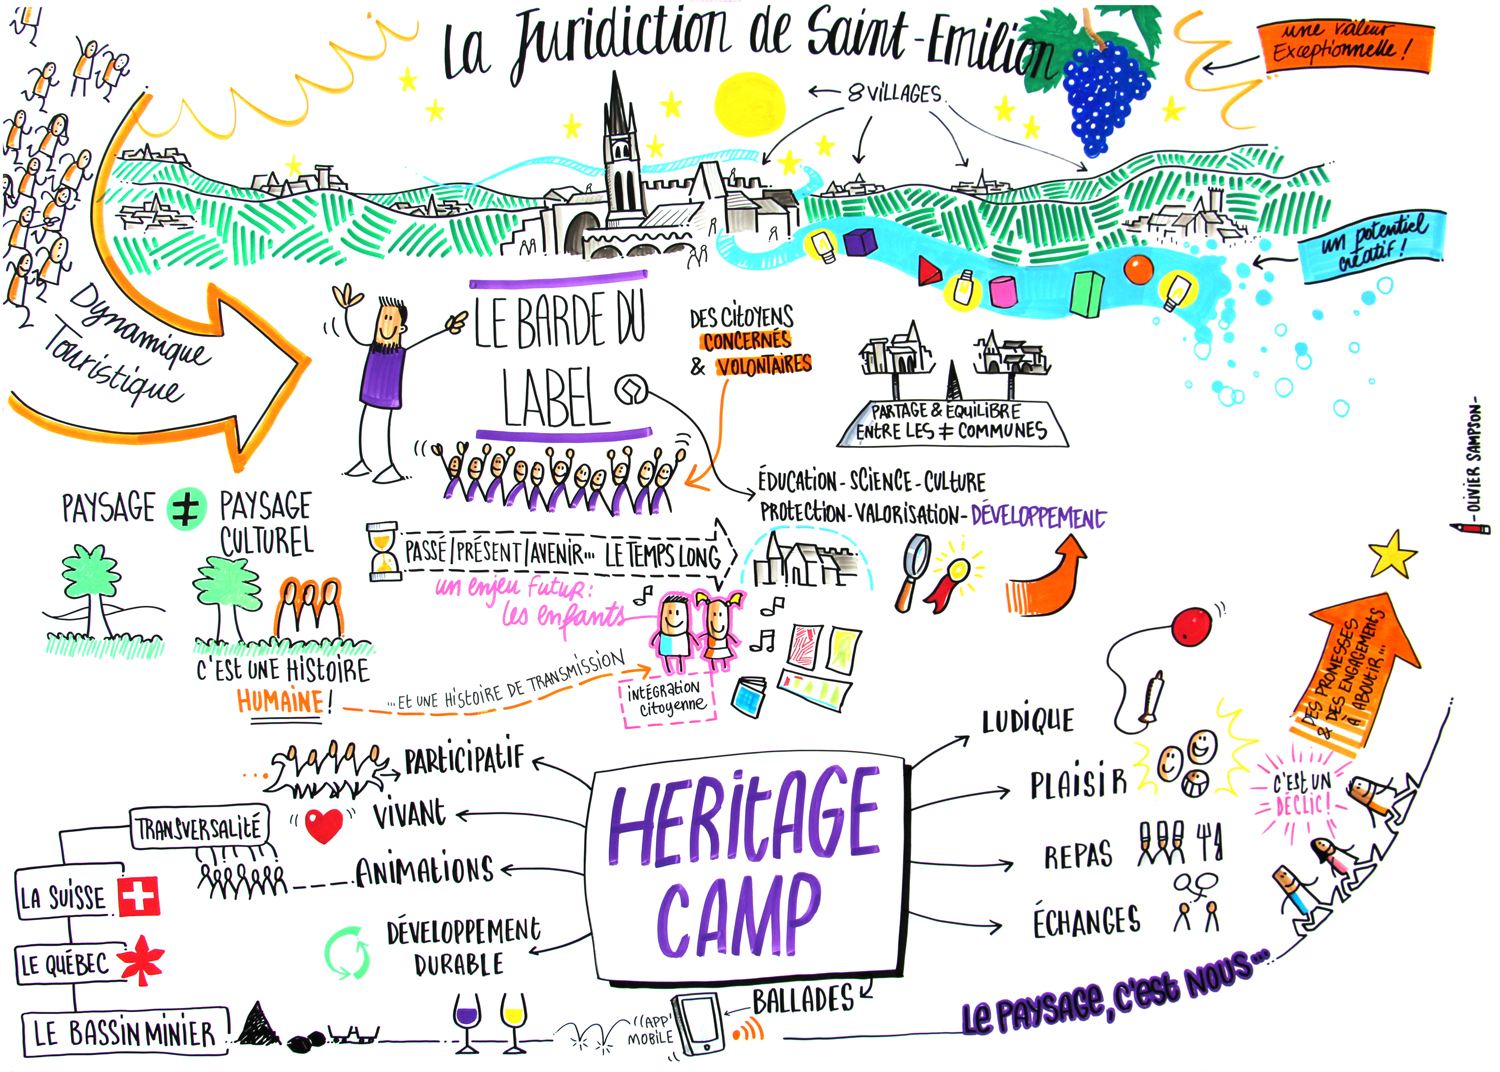 La Juridiction de Saint-Emilion
une valeur
Exceptionnelle !
8 VILLAGES
un potentiel
créatif !
Dynamique
Touristique
LE BARDE DU
LABEL
DES CITOYENS
CONCERNÉS
& VOLONTAIRES
PARTAGE & ÉQUILIBRE
ENTRE LES ≠ COMMUNES
-OLIVIER SAMPSON-
ÉDUCATION-SCIENCE-CULTURE
PROTECTION-VALORISATION-DÉVELOPPEMENT
PAYSAGE ≠ PAYSAGE
CULTUREL
PASSÉ/PRÉSENT/AVENIR... LE TEMPS LONG
un enjeu futur :
les enfants
C'EST UNE HISTOIRE
HUMAINE !
...ET UNE HISTOIRE DE TRANSMISSION
intégration
citoyenne
DES PROMESSES
& DES ENGAGEMENTS
À ABOUTIR...
HERITAGE
CAMP
PARTICIPATIF
VIVANT
TRANSVERSALITÉ
ANIMATIONS
LA SUISSE
LE QUÉBEC
LE BASSIN MINIER
DÉVELOPPEMENT
DURABLE
LUDIQUE
PLAISIR
C'EST UN
DÉCLIC !
REPAS
ÉCHANGES
BALLADES
APP'
MOBILE
LE PAYSAGE, C'EST NOUS...